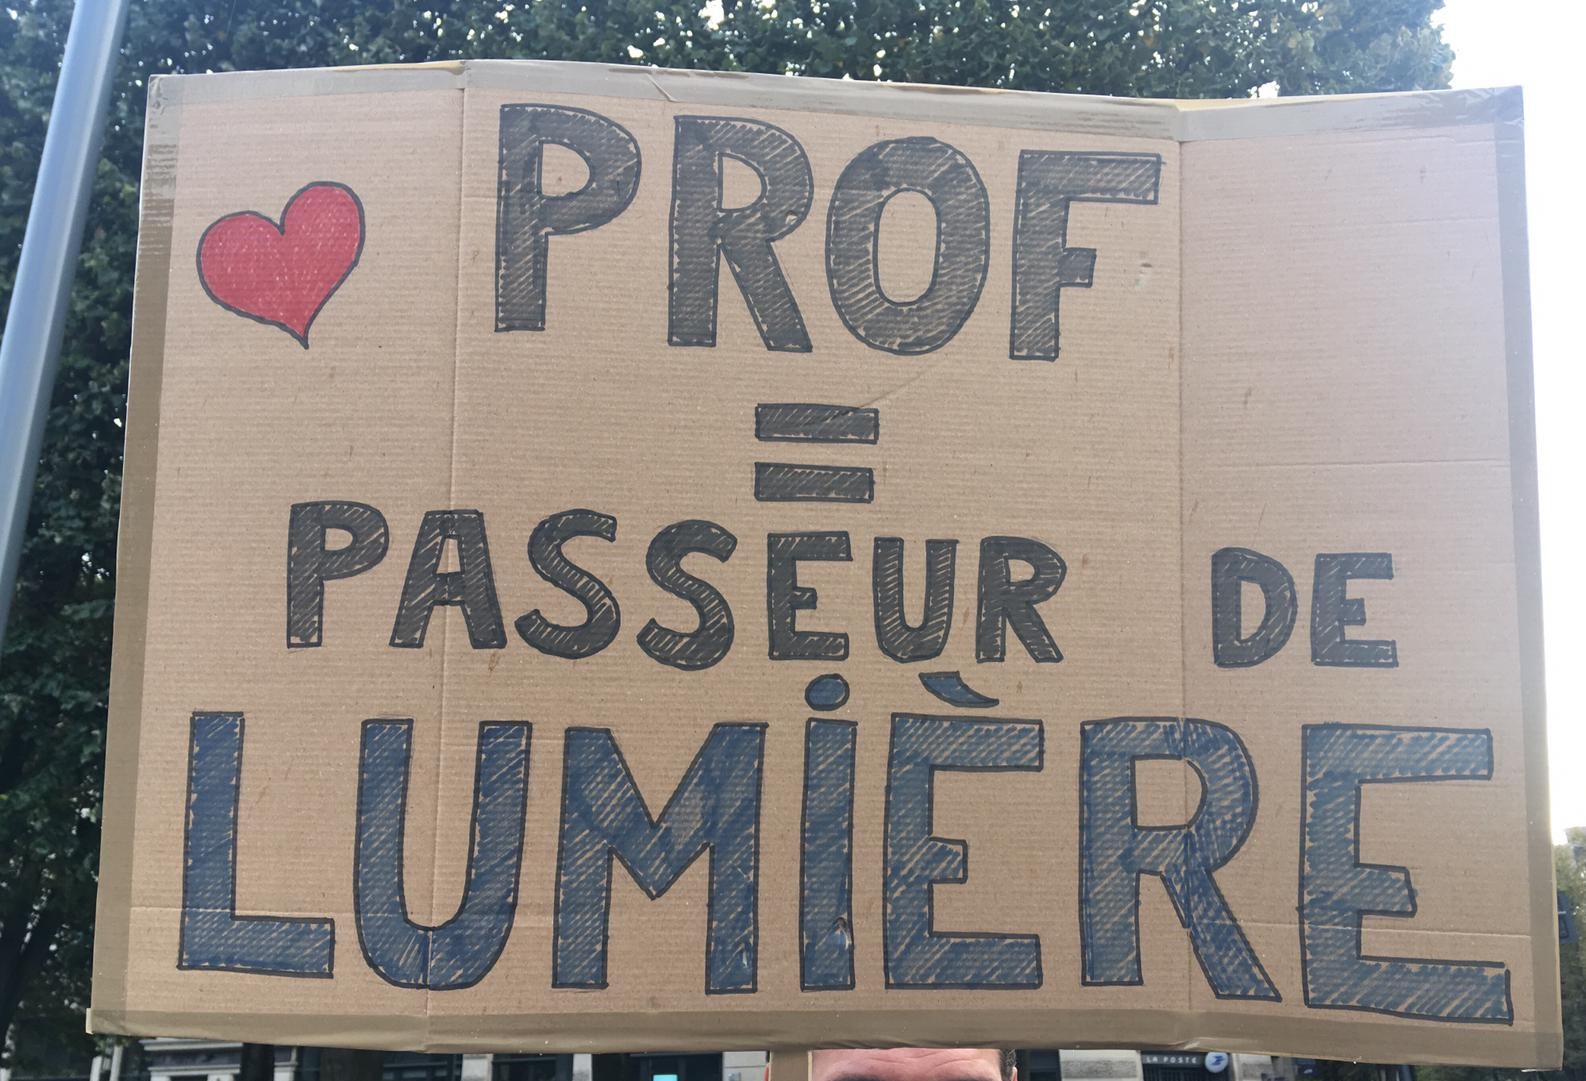 PROF
=
PASSEUR DE
LUMIÈRE
LA POSTE